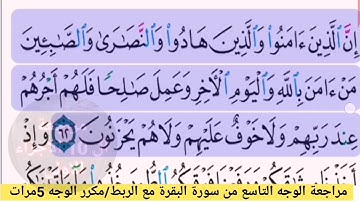 إِنَّ الَّذِينَ ءَامَنُوا۟ وَالَّذِينَ هَادُوا۟ وَالنَّصَـٰرَىٰ وَالصَّـٰبِـِٔينَ
مَنْ ءَامَنَ بِاللَّهِ وَالْيَوْمِ الْـَٔاخِرِ وَعَمِلَ صَـٰلِحًا فَلَهُمْ أَجْرُهُمْ
عِندَ رَبِّهِمْ وَلَا خَوْفٌ عَلَيْهِمْ وَلَا هُمْ يَحْزَنُونَ ٦٢ وَإِذْ
مراجعة الوجه التاسع من سورة البقرة مع الربط/مكرر الوجه 5مرات